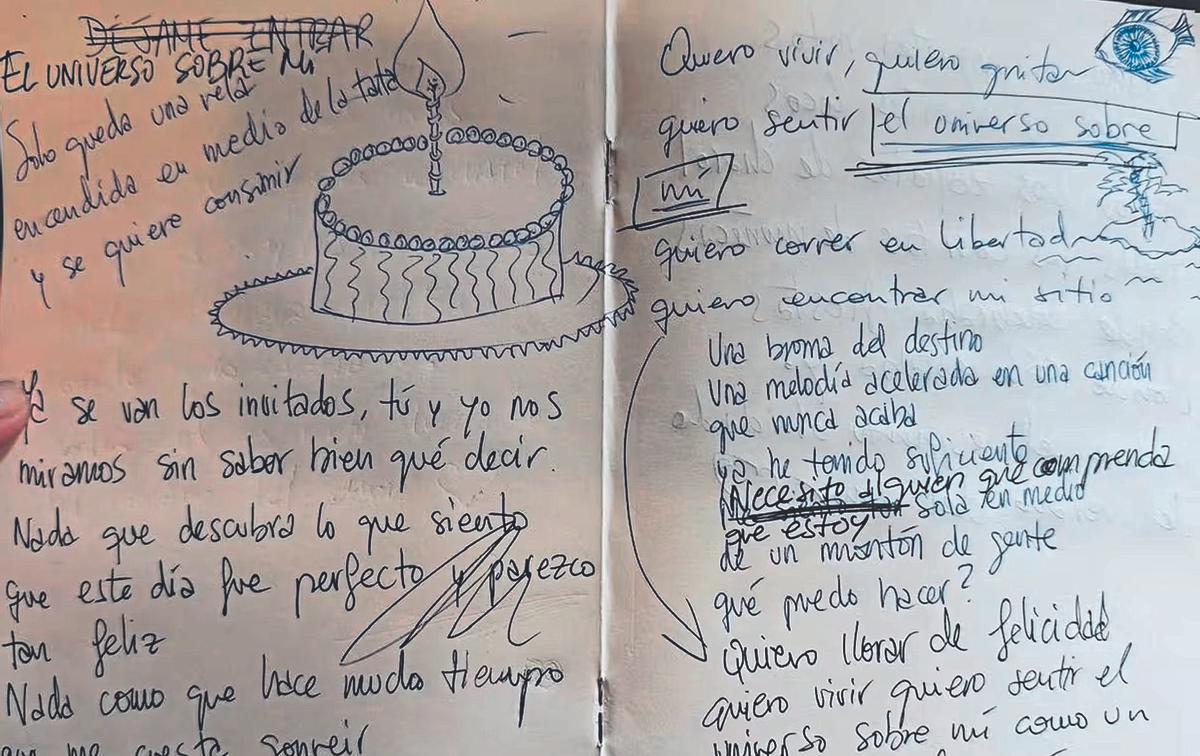 DÉJAME ENTRAR
EL UNIVERSO SOBRE MÍ
Solo queda una vela
encendida en medio de la tarta
y se quiere consumir
Ya se van los invitados, tú y yo nos
miramos sin saber bien qué decir.
Nada que descubra lo que siento
que este día fue perfecto y parezco
tan feliz
Nada como que hace mucho tiempo
que me cuesta sonreír
Quiero vivir, quiero gritar
quiero sentir el universo sobre
mí
quiero correr en libertad
quiero encontrar mi sitio
Una broma del destino
Una melodía acelerada en una canción
que nunca acaba
ya he tenido suficiente
Necesito alguien que comprenda
que estoy sola en medio
de un montón de gente
qué puedo hacer?
Quiero llorar de felicidad
quiero vivir quiero sentir el
universo sobre mí como un